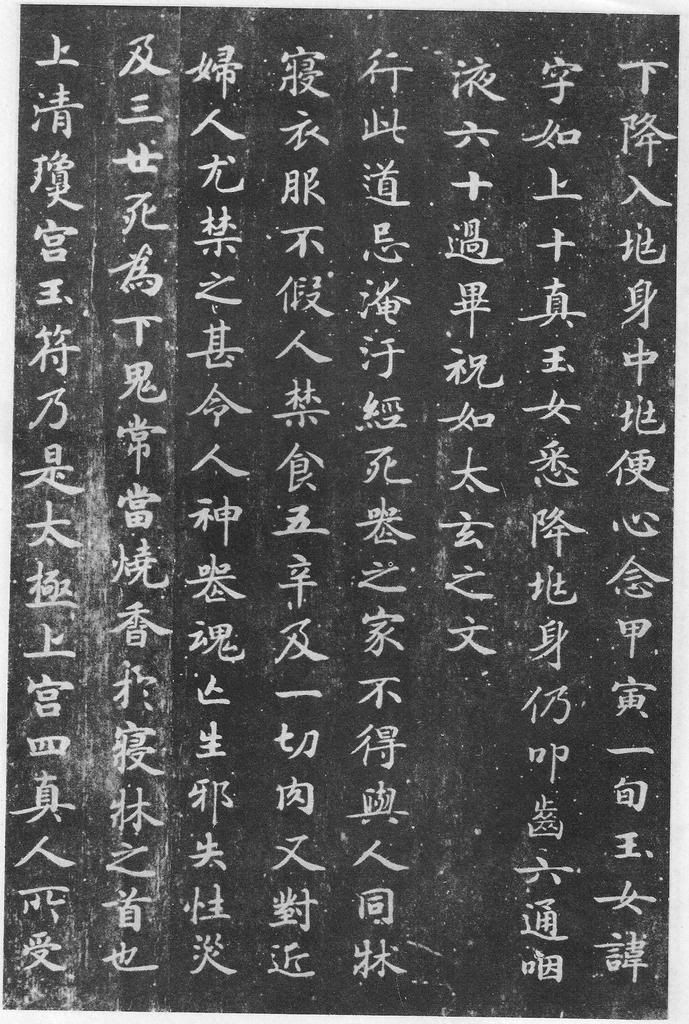 下降入𡉏身中𡉏便心念甲寅一旬玉女諱
字如上十真玉女悉降𡉏身仍叩齒六通咽
液六十過畢祝如太玄之文
行此道忌淹汙經死喪之家不得與人同牀
寢衣服不假人禁食五辛及一切肉又對近
婦人尤禁之甚令人神喪魂亡生邪失性災
及三世死為下鬼常當燒香於寢牀之首也
上清瓊宮玉符乃是太極上宮四真人所受